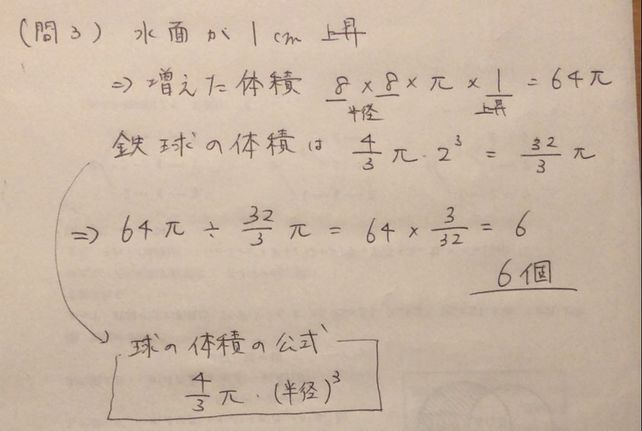 (問3) 水面が1cm上昇
⇒ 増えた体積 8×8×π×1=64π
半径 上昇
鉄球の体積は 4/3 π・2³ = 32/3 π
⇒ 64π ÷ 32/3 π = 64 × 3/32 = 6
6個
球の体積の公式
4/3 π・(半径)³